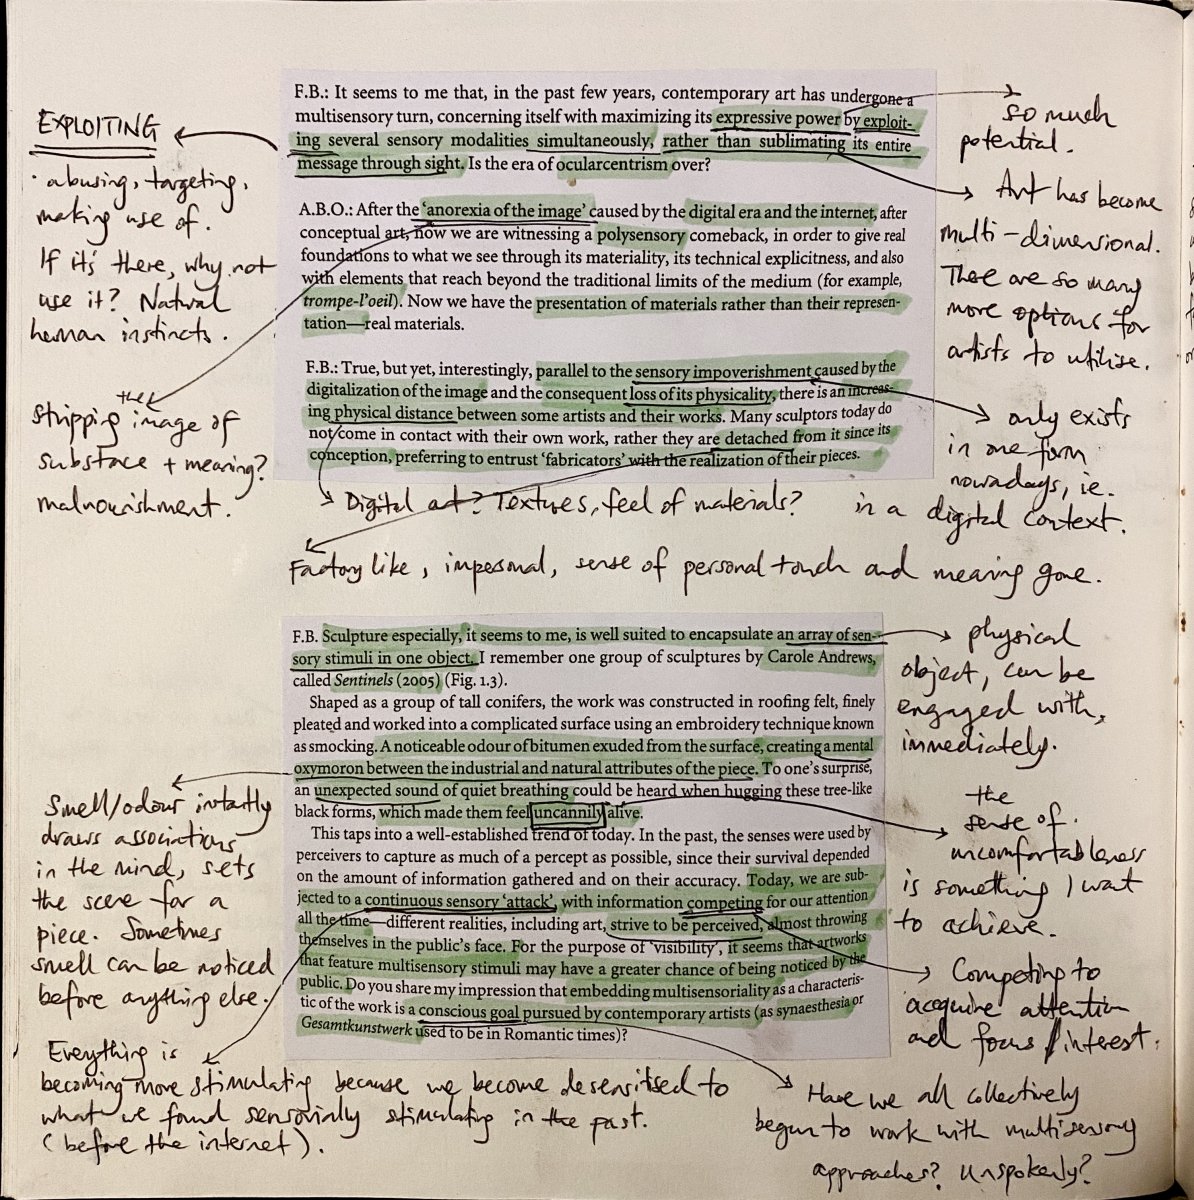 F.B.: It seems to me that, in the past few years, contemporary art has undergone a
multisensory turn, concerning itself with maximizing its expressive power by exploit-
ing several sensory modalities simultaneously, rather than sublimating its entire
message through sight. Is the era of ocularcentrism over?
A.B.O.: After the ‘anorexia of the image’ caused by the digital era and the internet, after
conceptual art, now we are witnessing a polysensory comeback, in order to give real
foundations to what we see through its materiality, its technical explicitness, and also
with elements that reach beyond the traditional limits of the medium (for example,
trompe-l’oeil). Now we have the presentation of materials rather than their represen-
tation—real materials.
F.B.: True, but yet, interestingly, parallel to the sensory impoverishment caused by the
digitalization of the image and the consequent loss of its physicality, there is an increas-
ing physical distance between some artists and their works. Many sculptors today do
not come in contact with their own work, rather they are detached from it since its
conception, preferring to entrust ‘fabricators’ with the realization of their pieces.
EXPLOITING
· abusing, targeting,
making use of.
If it's there, why not
use it? Natural
human instincts.
the
stripping image of
substace + meaning?
malnourishment.
so much
potential.
Art has become
multi-dimensional.
There are so many
more options for
artists to utilise.
only exists
in one form
nowadays, ie.
in a digital context.
Digital art? Textures, feel of materials?
Factory like, impersonal, sense of personal touch and meaning gone.
F.B. Sculpture especially, it seems to me, is well suited to encapsulate an array of sen-
sory stimuli in one object. I remember one group of sculptures by Carole Andrews,
called Sentinels (2005) (Fig. 1.3).
Shaped as a group of tall conifers, the work was constructed in roofing felt, finely
pleated and worked into a complicated surface using an embroidery technique known
as smocking. A noticeable odour of bitumen exuded from the surface, creating a mental
oxymoron between the industrial and natural attributes of the piece. To one’s surprise,
an unexpected sound of quiet breathing could be heard when hugging these tree-like
black forms, which made them feel uncannily alive.
This taps into a well-established trend of today. In the past, the senses were used by
perceivers to capture as much of a percept as possible, since their survival depended
on the amount of information gathered and on their accuracy. Today, we are sub-
jected to a continuous sensory ‘attack’, with information competing for our attention
all the time—different realities, including art, strive to be perceived, almost throwing
themselves in the public’s face. For the purpose of ‘visibility’, it seems that artworks
that feature multisensory stimuli may have a greater chance of being noticed by the
public. Do you share my impression that embedding multisensoriality as a characteris-
tic of the work is a conscious goal pursued by contemporary artists (as synaesthesia or
Gesamtkunstwerk used to be in Romantic times)?
physical
object, can be
engaged with,
immediately.
Smell/odour instantly
draws associations
in the mind, sets
the scene for a
piece. Sometimes
smell can be noticed
before anything else.
the
sense of
uncomfortableness
is something I want
to achieve.
Competing to
acquire attention
and focus / interest.
Everything is
becoming more stimulating because we become desensitsed to
what we found sensorially stimulating in the past.
(before the internet).
Have we all collectively
begun to work with multisensory
approaches? Unspokenly?